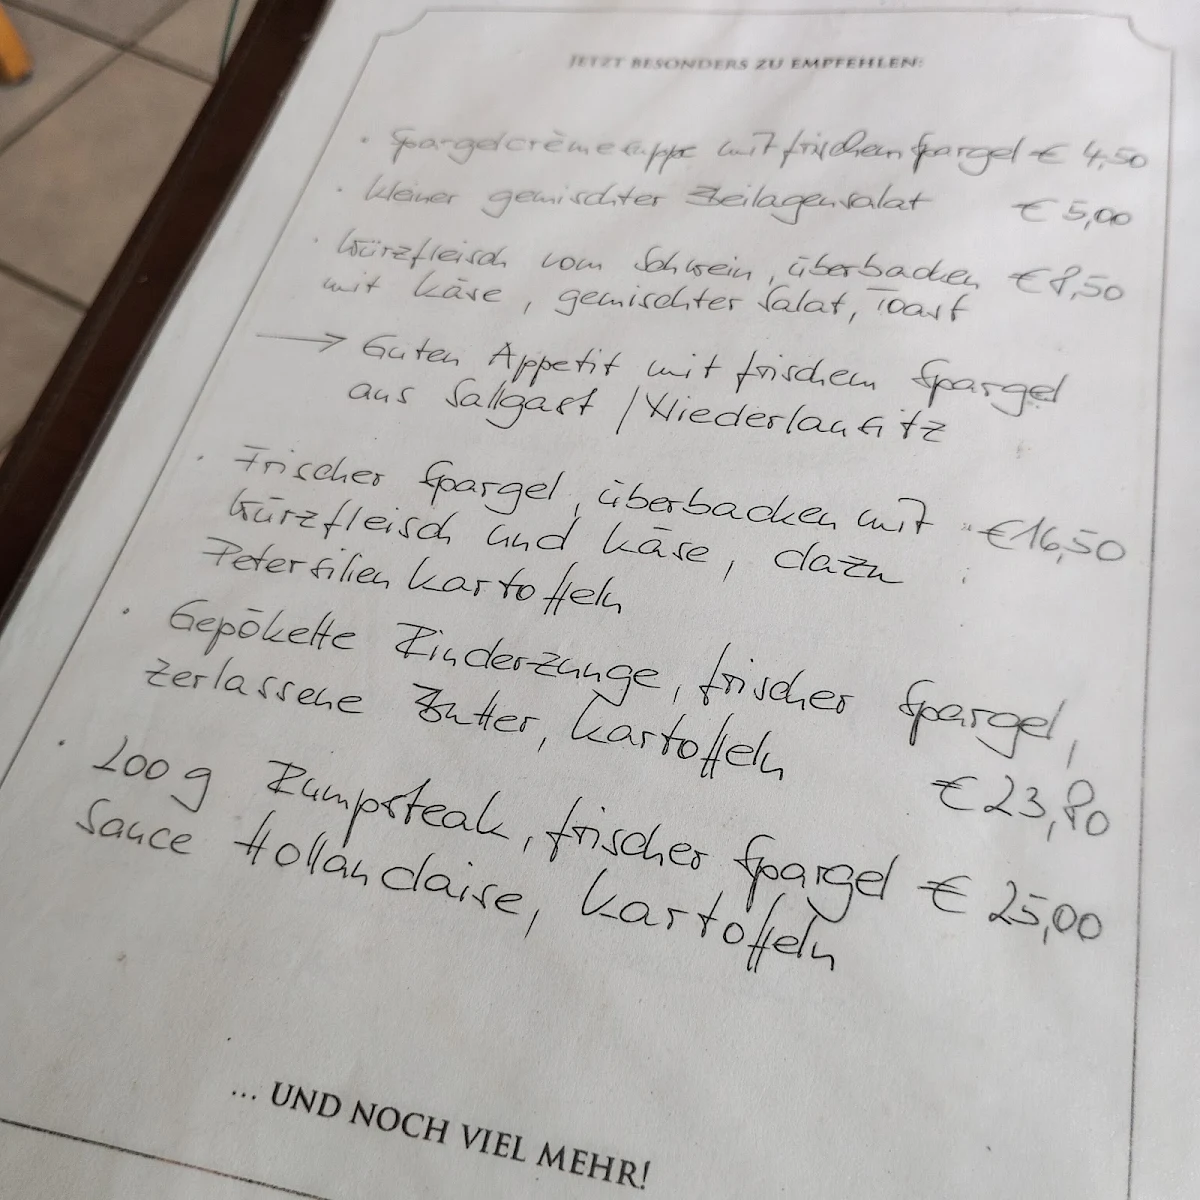 JETZT BESONDERS ZU EMPFEHLEN:
· Spargelcrèmesuppe mit frischem Spargel € 4,50
· kleiner gemischter Beilagensalat € 5,00
· Würzfleisch vom Schwein, überbacken € 8,50
mit Käse, gemischter Salat, Toast
→ Guten Appetit mit frischem Spargel
aus Sallgast / Niederlausitz
· Frischer Spargel, überbacken mit € 16,50
Würzfleisch und Käse, dazu
Petersilienkartoffeln
· Gepökelte Rinderzunge, frischer Spargel,
zerlassene Butter, Kartoffeln € 23,80
· 200 g Rumpsteak, frischer Spargel € 25,00
Sauce Hollandaise, Kartoffeln
... UND NOCH VIEL MEHR!